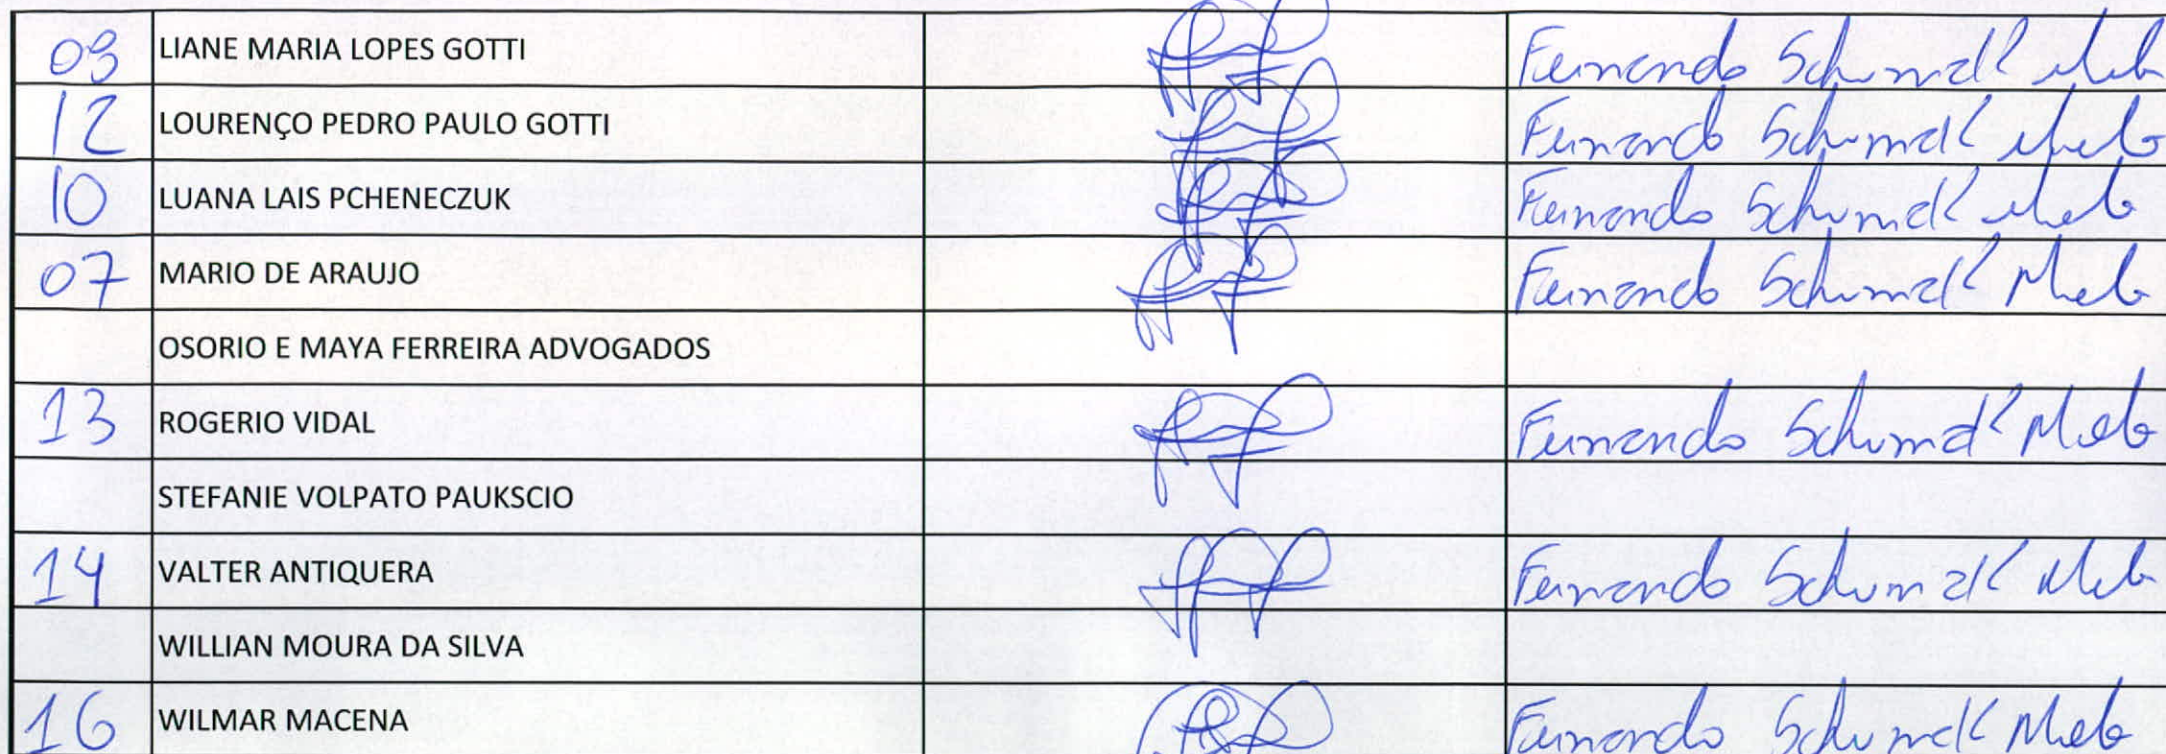 09 LIANE MARIA LOPES GOTTI Fernando Schumak Melo
12 LOURENÇO PEDRO PAULO GOTTI Fernando Schumak Melo
10 LUANA LAIS PCHENECZUK Fernando Schumak Melo
07 MARIO DE ARAUJO Fernando Schumak Melo
OSORIO E MAYA FERREIRA ADVOGADOS
13 ROGERIO VIDAL Fernando Schumak Melo
STEFANIE VOLPATO PAUKSCIO
14 VALTER ANTIQUERA Fernando Schumak Melo
WILLIAN MOURA DA SILVA
16 WILMAR MACENA Fernando Schumak Melo